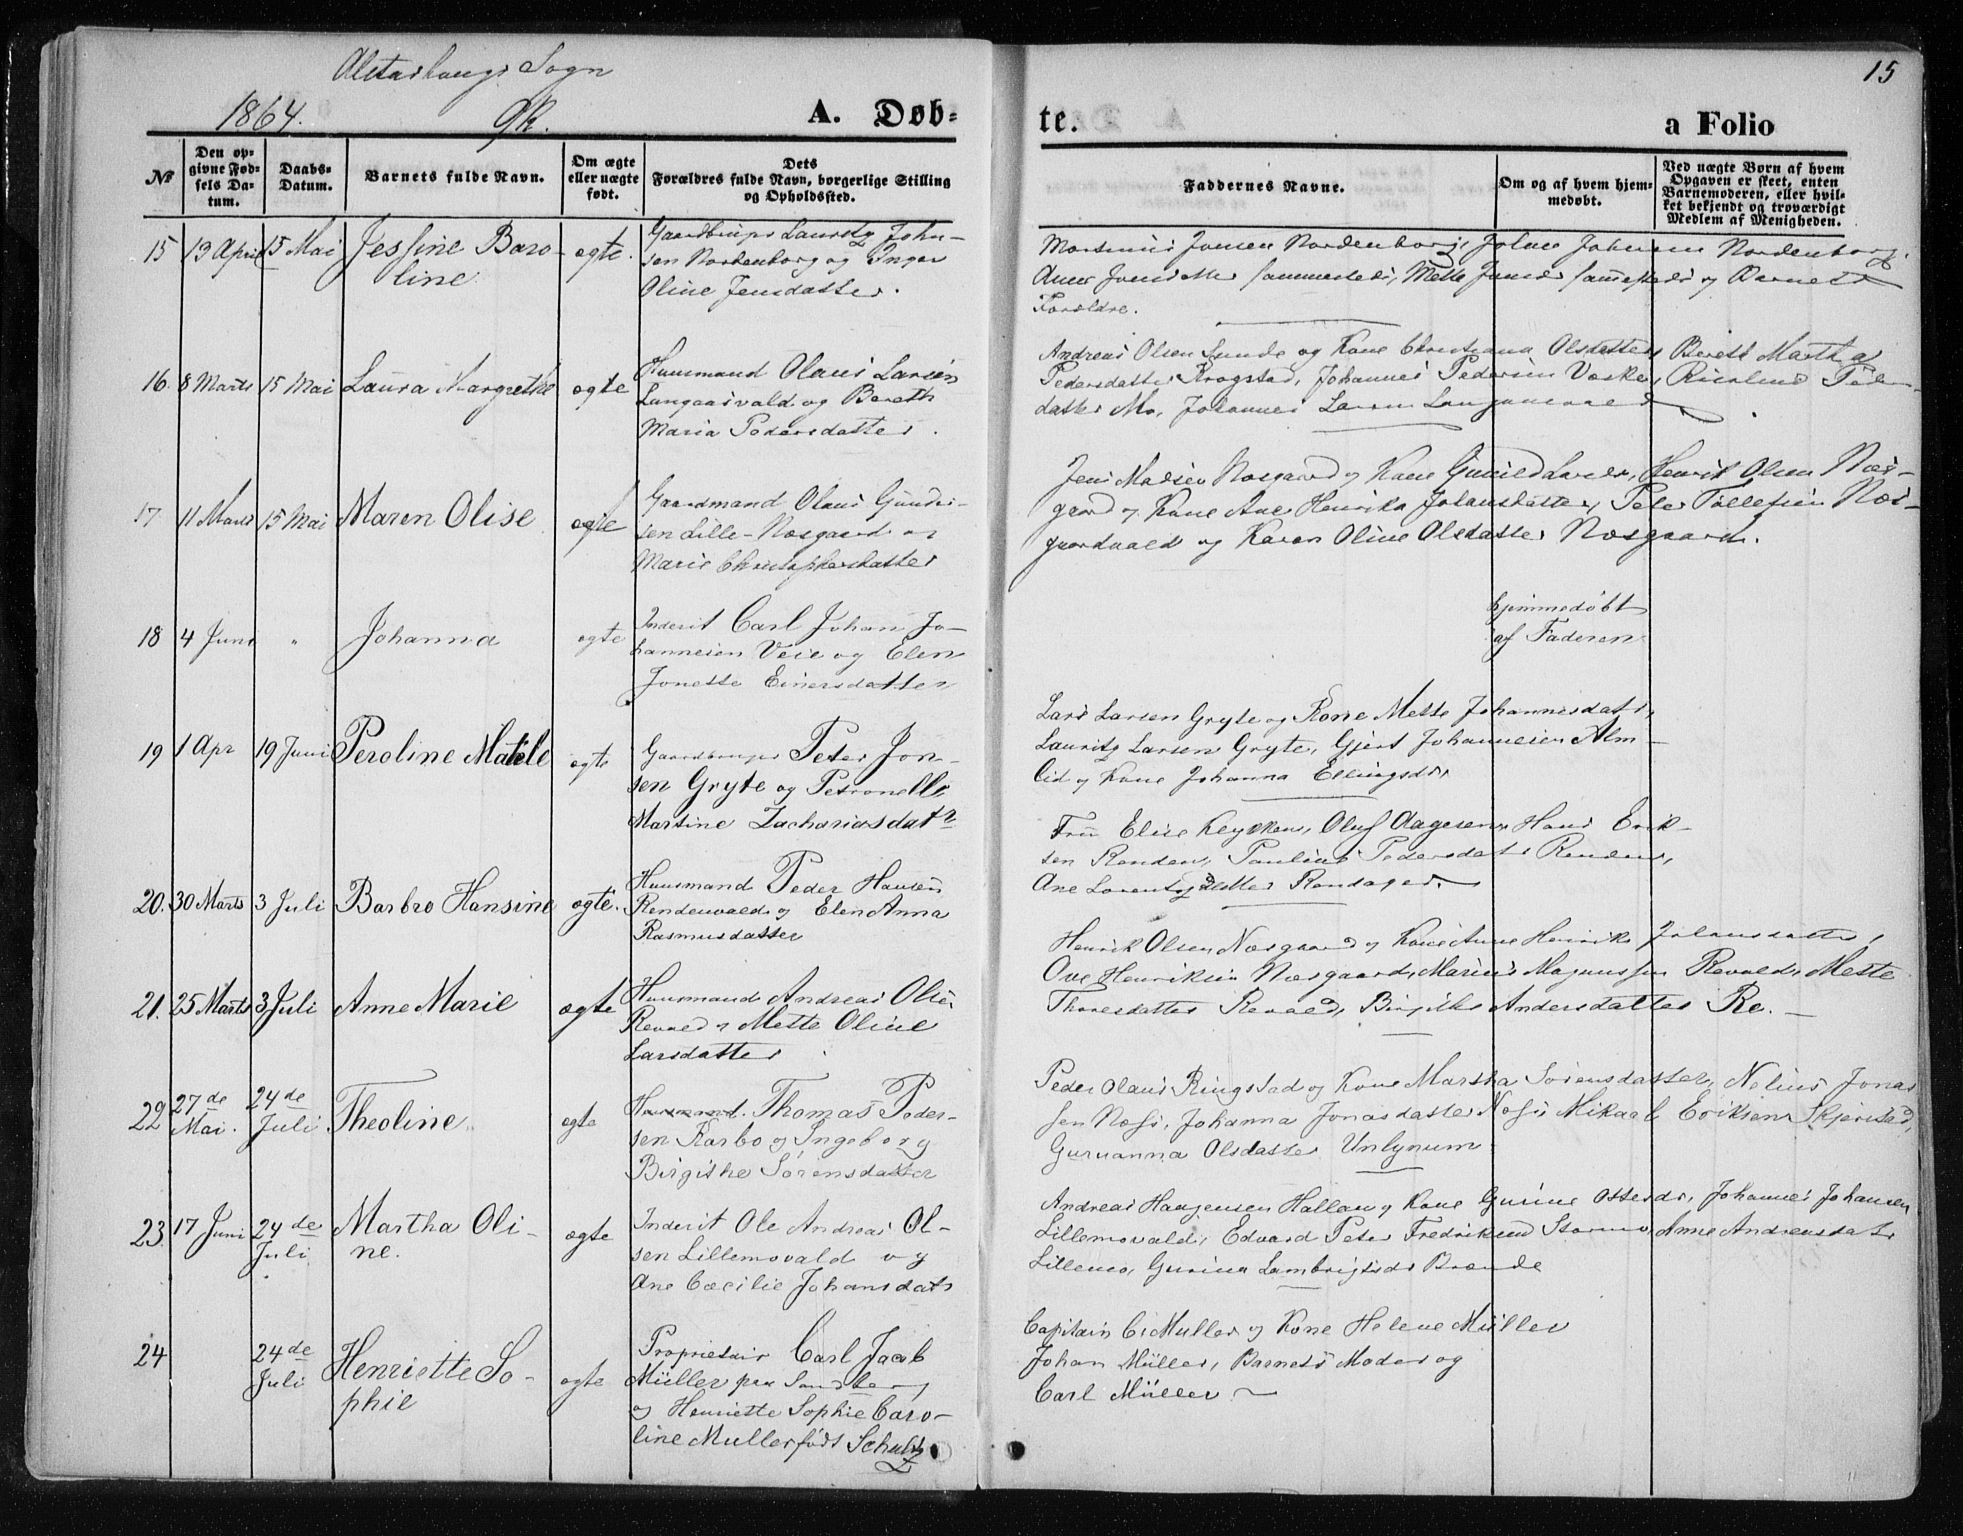 Alstarhougs Sogn
15
1864.
QK.
A. Døb=
te.
a Folio
No
Den op-
givne Fød-
sels Da-
tum.
Daabs-
Datum.
Barnets fulde Navn.
Om ægte
eller uægte
født.
Dets
Forældres fulde Navn, borgerlige Stilling
og Opholdssted.
Faddernes Navne.
Om og af hvem hjem-
medøbt.
Ved uægte Børn af hvem
Opgaven er skeet, enten
Barnemoderen, eller hvil-
ket bekjendt og troværdigt
Medlem af Menigheden.
15 13 April 15 Mai Jessine Baro-
line
ægte.
Gaardbruger Lauritz John-
sen Nordenborg og Inger
Oline Jensdatter.
Johnsen Nordenborg,
sammesteds, Mette og Barnets
Forældre.
16. 8 Marts 15 Mai Laura Margrethe ægte
Huusmand Olaus Larsen
Langaasvald og Bereth
Maria Pedersdatter.
Andreas Olsen Sunde og Kone Christiana Olsdatter, Berett Martha
Pedersdatter Krogstad, Johannes Pedersen
datter Mo, Johannes Larsen Langaasvald
17. 11 Marts 15 Mai Maren Olise ægte
Gaardmand Olaus Gunder-
sen Lille-Næsgaard og
Marie Christophersdatter
Jens Madsen Næsgaard og Kone Henrik Olsen Næs-
gaard og Kone Ane Henrika Johansdatter, Peter Tollefsen Næs-
gaardvald og Karen Oline Olsdatter Næsgaard.
18 4 Juni " Johanna ægte
Inderst Carl Johan Jo-
hannesen Veie og Elen
Jonette Einersdatter
hjemmedøbt
af Faderen
19 1 Apr 19 Juni Peroline Matele ægte
Gaardbruger Peter Jon-
sen Gryte og Petronelle
Martine Zachariasdatr
Lars Larsen Gryte og Kone Mette Johannesdatr,
Lauritz Larsen Gryte, Gjert Johannesen Alm-
lid og Kone Johanna Ellingsdr,
20. 30 Marts 3 Juli Barbro Hansine ægte.
Huusmand Peder Hansen
Rendenvald og Elen Anna
Rasmusdatter
Fru Elise Oluf Aagesen, Hans Erik-
sen Renden, Pedersdatr Renden,
Ane Lorentzdatter
21. 25 Marts 3 Juli Anne Marie ægte
Huusmand Andreas Olse.
Revald og Mette Oline
Larsdatter
Henrik Olsen Næsgaard og Kone Anne Henrike Johansdatter,
Ove Henriksen Næsgaard, Marius Magnussen Revald, Mette
Thoresdatter Revald, Birgithe Andersdatter Re.
22 27de
Mai.
24de
Juli
Theoline ægte
Huusmand. Thomas Peder-
sen Karbo og Ingeborg
Birgithe Sørensdatter
Peder Olaus Ringstad og Kone Martha Sørensdatter, Nelius Jonas
sen Næss, Johanna Jonasdatter Næss Mikael Eriksen Skjerstad,
Guruanna Olsdatter
23. 17 Juni 24de
Juli
Martha Oli-
ne.
ægte
Inderst Ole Andreas Ol-
sen Lillemovald og
Ane Cæcilie Johansdatr
Andreas Haagensen Halland og Kone Gurine Ottersdr, Johannes Johansen
Lillemovald, Edvard Peter Fredriksen Anne Andreasdatr
Lillemo, Gurina Lambrigtsdr Brænde
24 24de
Juli
Henriette So-
phie
ægte
Proprietair Carl Jacob
Müller paa
og Henriette Sophie Caro-
line Muller født Schultz
Capitain C. Muller og Kone Helene Müller
Johan Müller, Barnets Moder og
Carl Müller